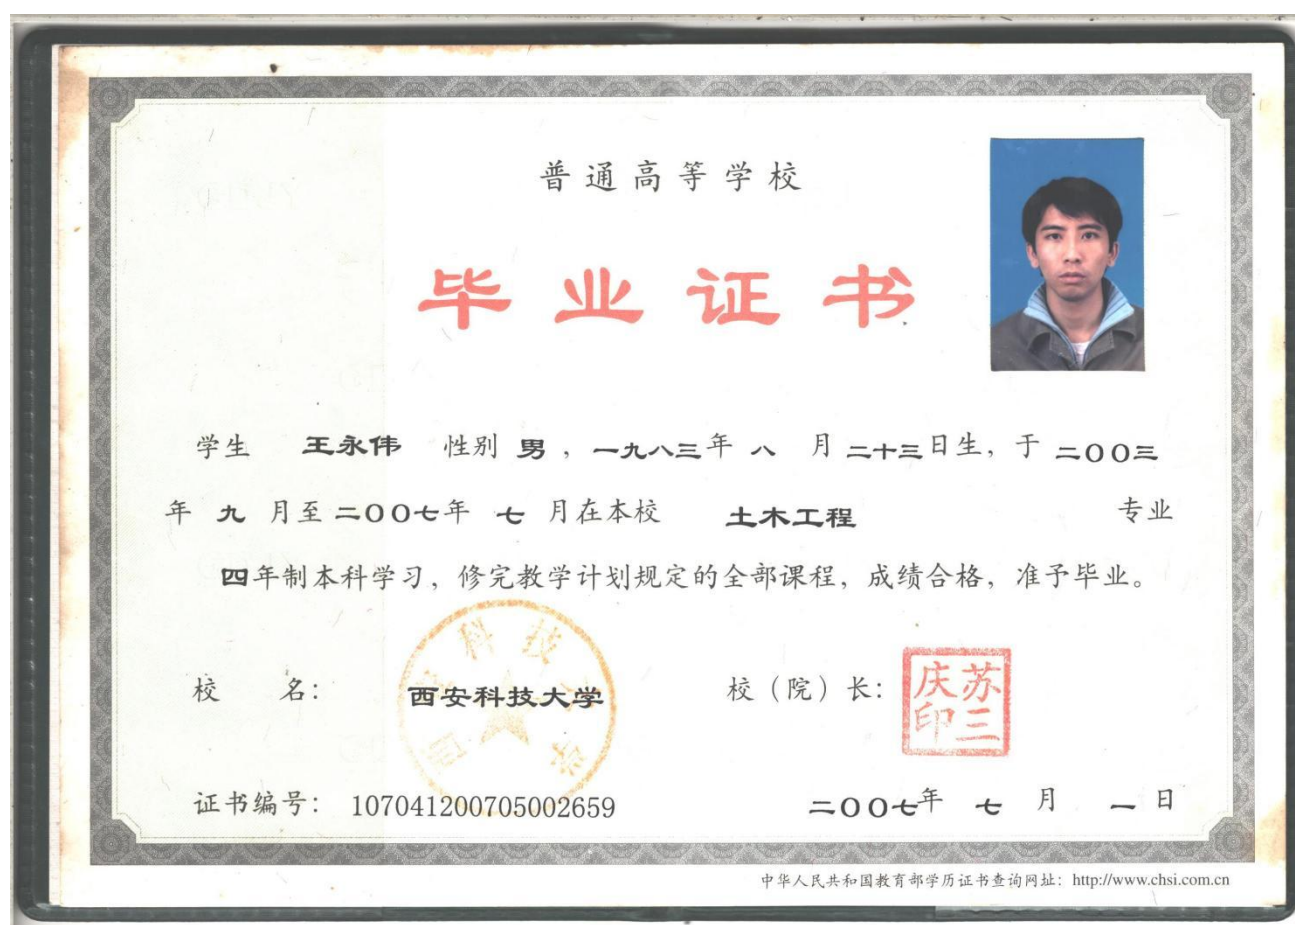 普通高等学校
毕业证书
学生 王永伟 性别 男，一九八三年 八 月 二十三日生，于 二〇〇三
年 九 月至 二〇〇七年 七 月在本校 土木工程 专业
四年制本科学习，修完教学计划规定的全部课程，成绩合格，准予毕业。
西安科技大学
校 名： 西安科技大学 校（院）长： 苏三庆印
证书编号： 107041200705002659 二〇〇七年 七 月 一 日
中华人民共和国教育部学历证书查询网址：http://www.chsi.com.cn